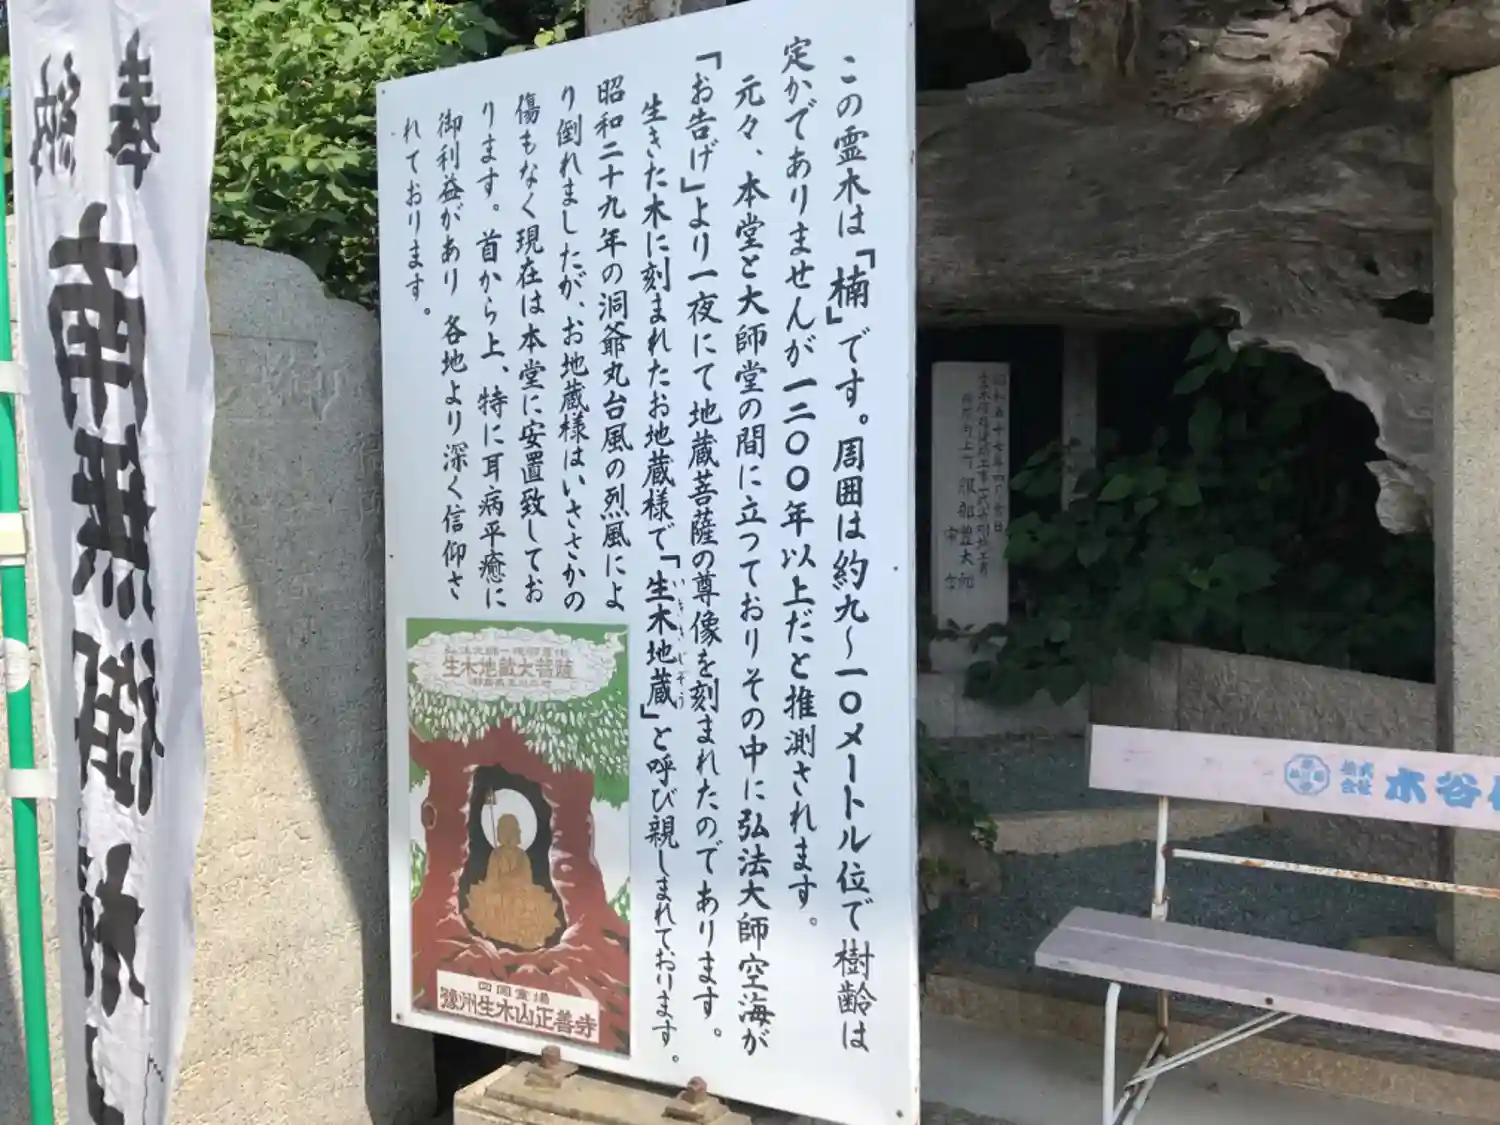 この霊木は「楠」です。周囲は約九～一〇メートル位で樹齢は
定かでありませんが一二〇〇年以上だと推測されます。
元々、本堂と大師堂の間に立つておりその中に弘法大師空海が
「お告げ」より一夜にて地蔵菩薩の尊像を刻まれたのであります。
生きた木に刻まれたお地蔵様で「生木地蔵」と呼び親しまれております。
いききじぞう
昭和二十九年の洞爺丸台風の烈風によ
り倒れましたが、お地蔵様はいささかの
傷もなく現在は本堂に安置致してお
ります。首から上、特に耳病平癒に
御利益があり 各地より深く信仰さ
れております。
生木地蔵大菩薩
四国霊場
豫州生木山正善寺
奉納
南無御
服部豊大郎
株式会社
水谷